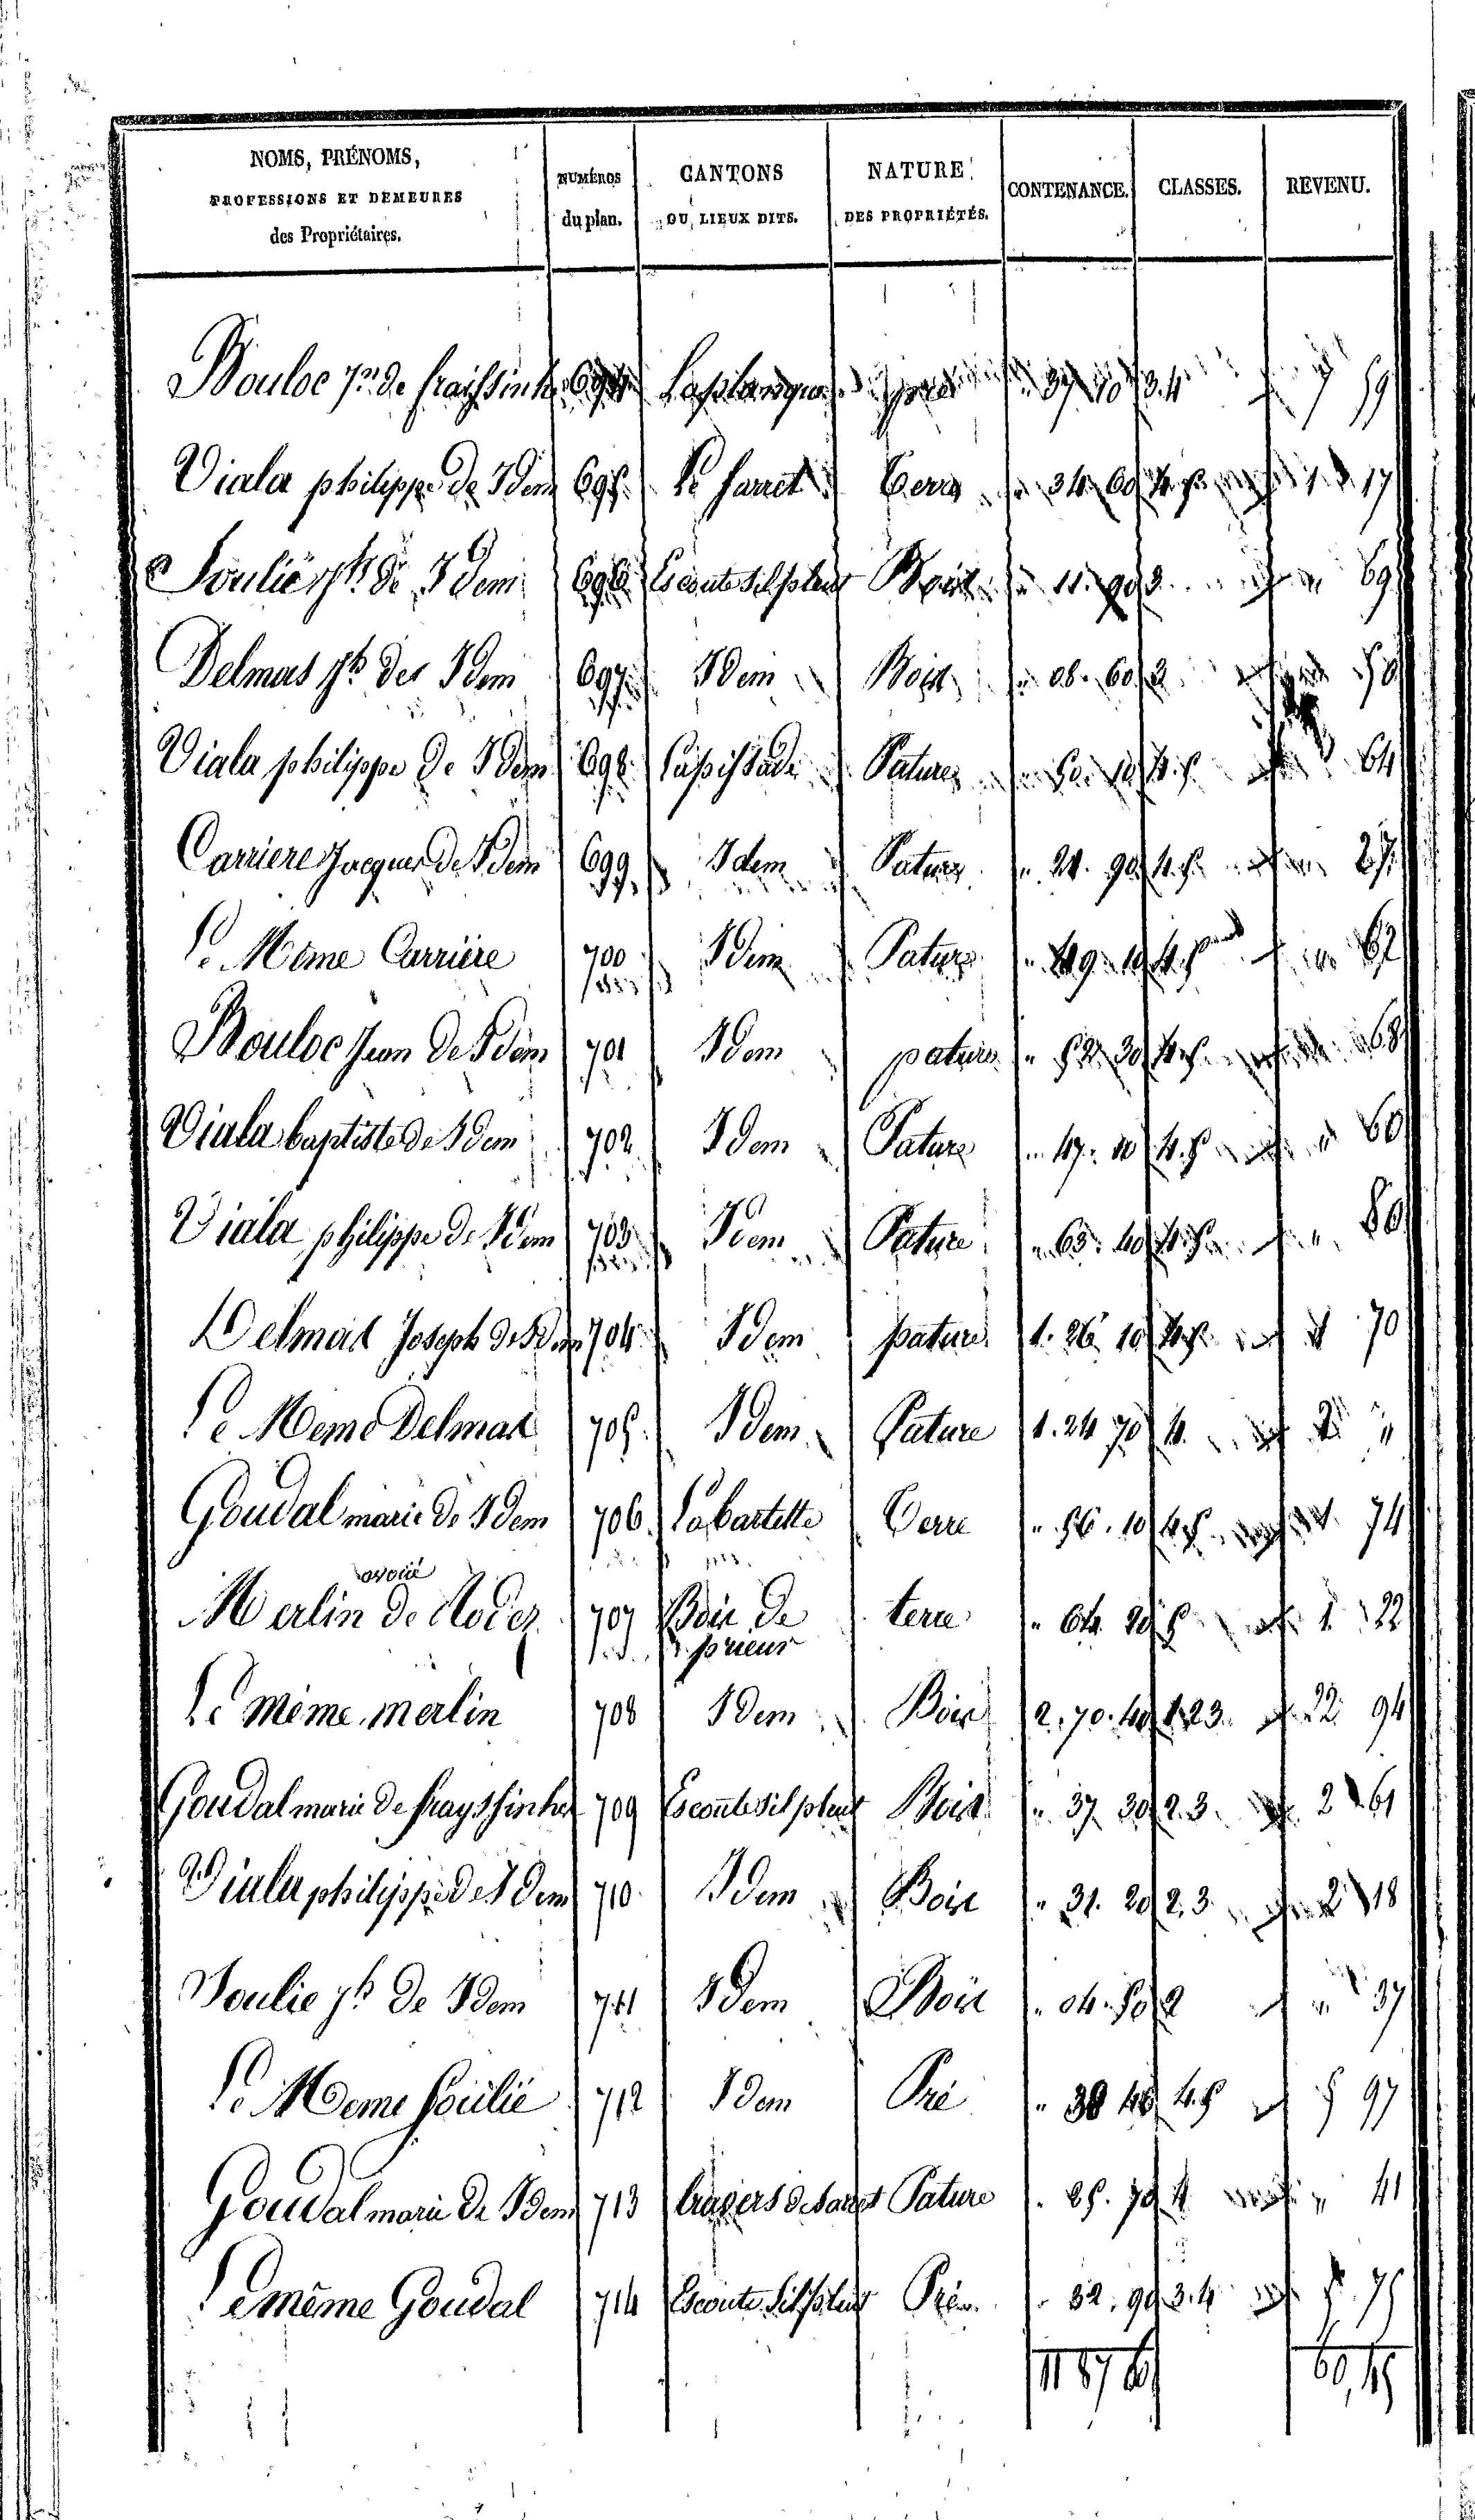 NOMS, PRÉNOMS,
PROFESSIONS ET DEMEURES
des Propriétaires.
NUMÉROS
du plan.
CANTONS
OU LIEUX DITS.
NATURE
DES PROPRIÉTÉS.
CONTENANCE.
CLASSES.
REVENU.
Bouloc Jn de fraissinhes 694 Laplanque pré " 37 10 3.4 7 59
Viala philippe de Idem 695 Le sarret Terre " 34 60 4.5 1 17
Soulié jh de Idem 696 Escoute sil pleut Bois " 11.90 2 " 69
Delmas jh des Idem 697 Idem Bois " 08.60 2 " 50
Viala philippe de Idem 698 Pature " 50.10 4.5 " 64
Carriere Jacques de Idem 699 Idem Pature " 21.90 4.5 " 27
Le Même Carrière 700 Idem Pature " 49.10 4.5 " 62
Bouloc Jean de Idem 701 Idem pature " 52.30 4.5 " 68
Viala baptiste de Idem 702 Idem Pature " 47.10 4.5 " 60
Viala philippe de Idem 703 Idem Pature " 63.40 4.5 " 80
Delmas Joseph de Idem 704 Idem pature 1.26 10 4.5 1 70
Le Meme Delmas 705 Idem Pature 1.24 70 4. 2 "
Goudal marie de Idem 706 Labartette Terre " 56.10 4.5 1. 74
avoué
Merlin de Rodez 707 Bois de terre " 64.20 5 1 22
prieur
Le même merlin 708 Idem Bois 2.70.40 1.2.3. 22 94
Goudal marie de frayssinhes 709 Escoute sil pleut Bois " 37 30 2.3. 2 61
Viala philippe de Idem 710 Idem Bois " 31.20 2.3. 2 18
Soulie jh de Idem 711 Idem Bois " 04.50 2 " 37
Le Meme soulié 712 Idem Pré " 38 40 4.5 5 97
Goudal marie de Idem 713 travers de sarret Pature " 25.70 4 " 41
Le même Goudal 714 Escoute sil pleut Pré " 32.90 3.4 5.75
11 87 60,45